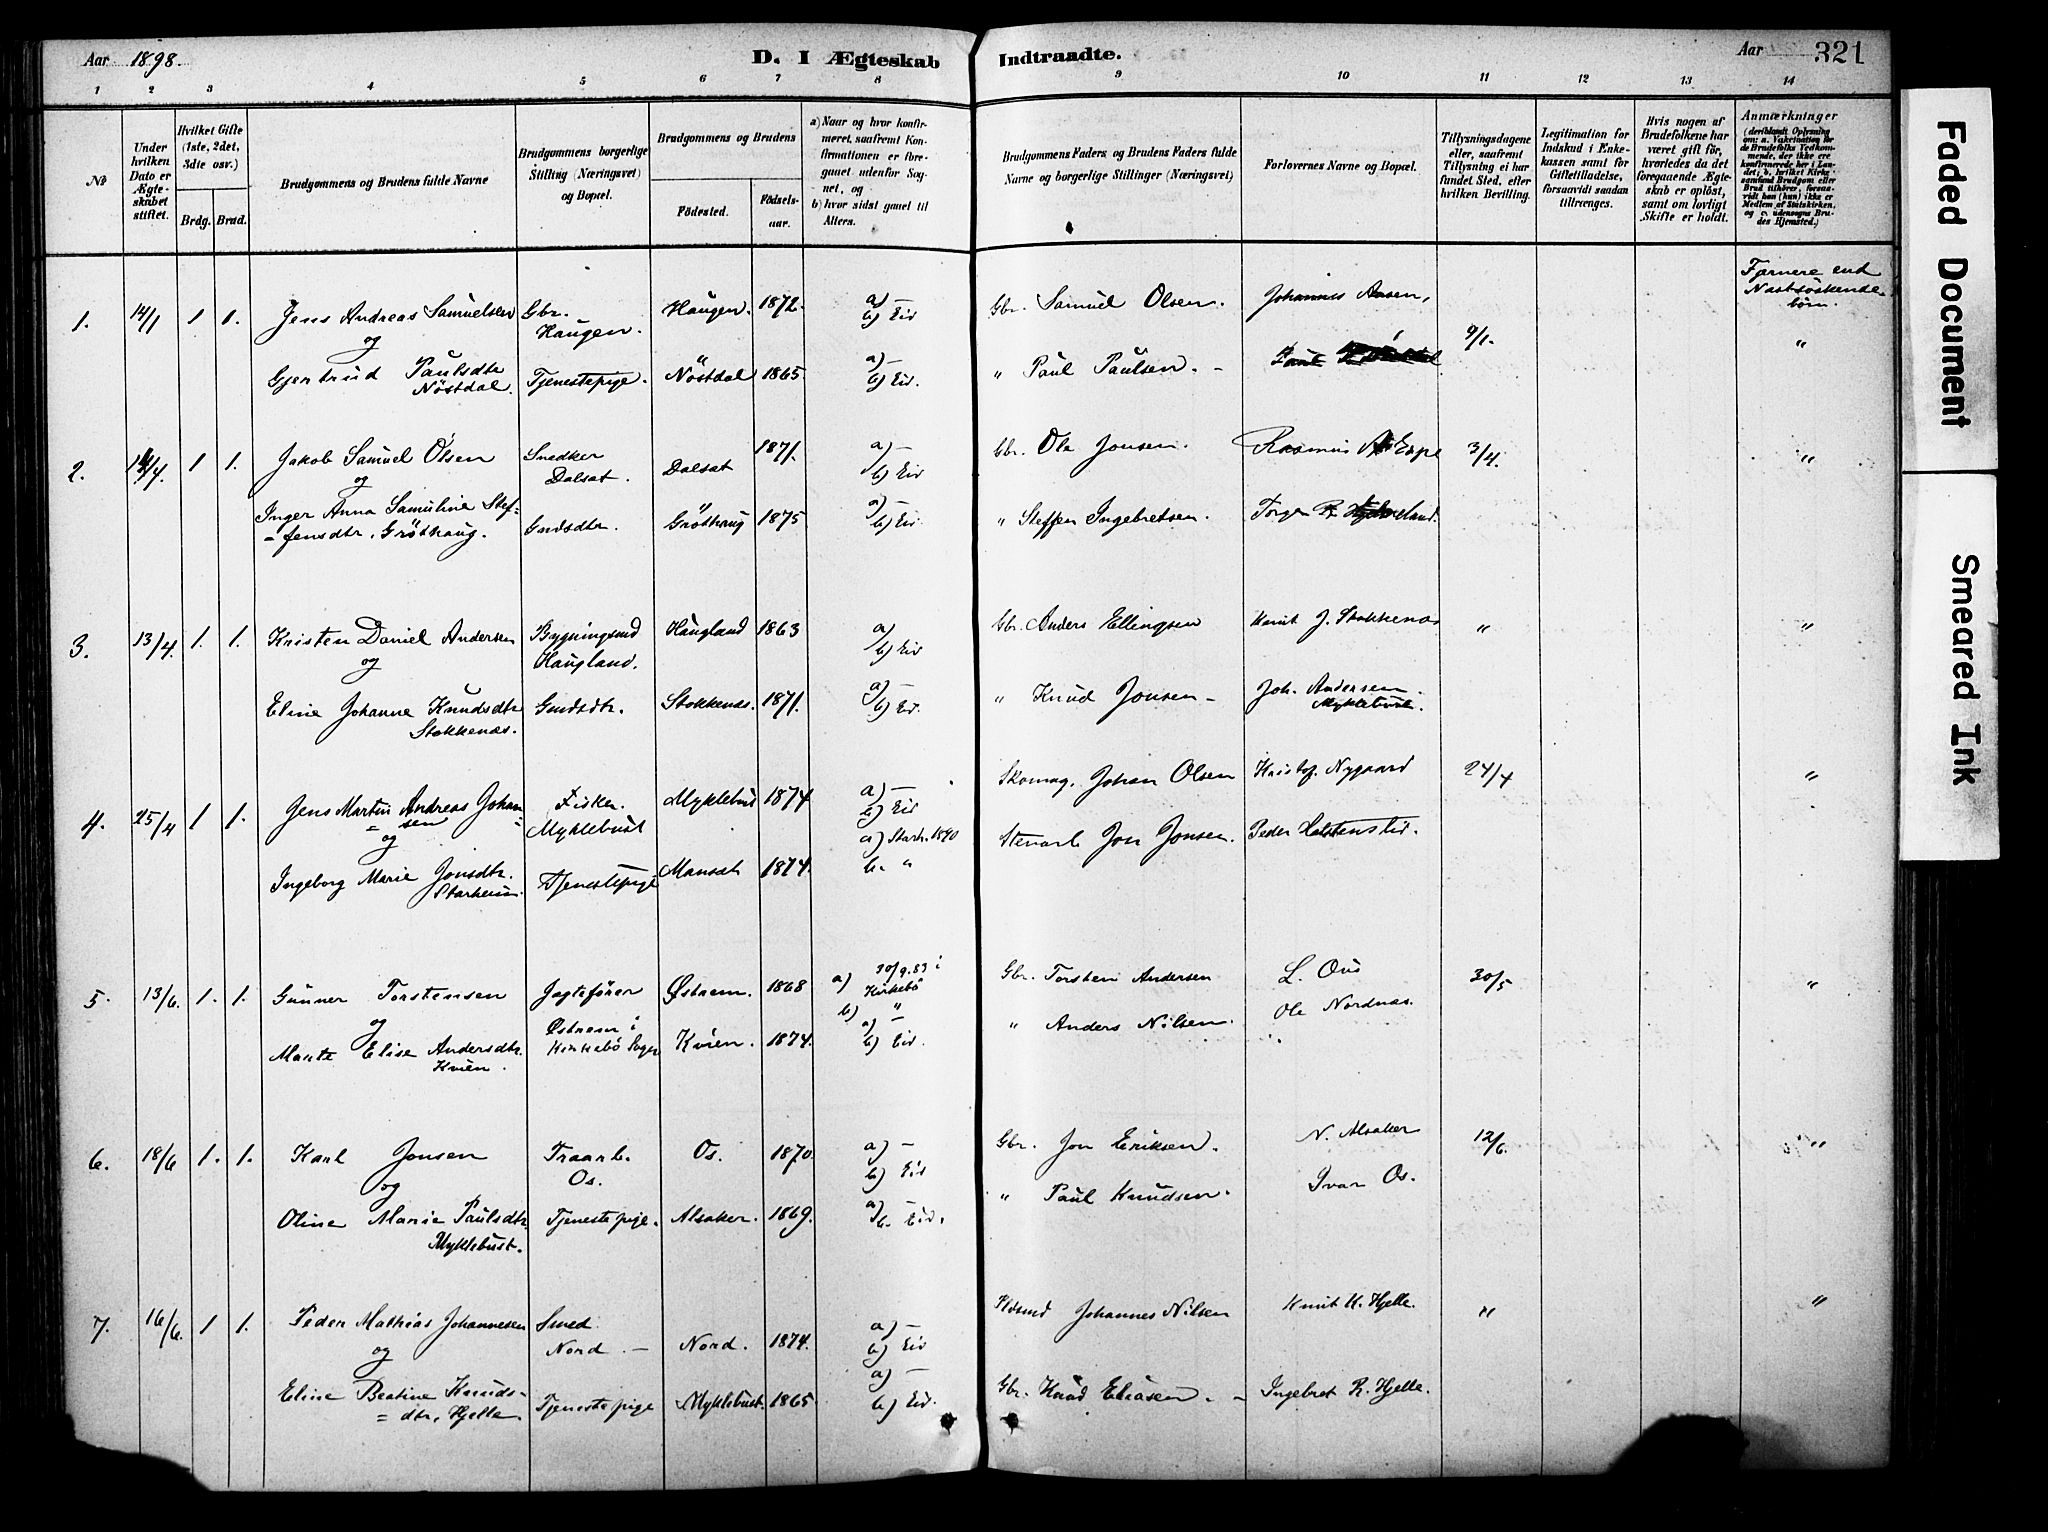 Aar 1898.
D. I Ægteskab Indtraadte.
Aar 321
1 2 3 4 5 6 7 8 9 10 11 12 13 14
No
Under hvilken Dato er Ægteskabet stiftet.
Hvilket Gifte (1ste, 2det, 3die osv.)
Brdg. Brud.
Brudgommens og Brudens fulde Navne
Brudgommens borgerlige Stilling (Næringsvei) og Bopæl.
Brudgommens og Brudens
Fødested.
Fødselsaar.
a) Naar og hvor konfirmeret, saafremt Konfirmationen er foregaaet udenfor Sognet, og
b) hvor sidst gaaet til Alters.
Brudgommens Faders og Brudens Faders fulde Navne og borgerlige Stillinger (Næringsvei)
Forlovernes Navne og Bopæl.
Tillysningsdagene eller, saafremt Tillysning ei har fundet Sted, efter hvilken Bevilling.
Legitimation for Indskud i Enkekassen samt for Giftetilladelse, forsaavidt saadan tiltrænges.
Hvis nogen af Brudefolkene har været gift før, hvorledes da det foregaaende Ægteskab er opløst, samt om lovligt Skifte er holdt.
Anmærkninger
(deriblandt Oplysning om: a. Vakcination for de Brudefolks Vedkommende, der ikke ere konfirmerede her i Landet; b. hvilket Kirkesamfund Brudgom eller Brud tilhører, forsaavidt han (hun) ikke er Medlem af Statskirken, og c. udensogns Brudes Hjemsted.)
1. 14/1 1 1. Jens Andreas Samuelsen Gbr. Haugen. Haugen. 1872. a) — b) Eid Gbr. Samuel Olsen. Johannes Aasen, 9/1. Fjernere end Næstsøskendebørn.
og
Gjertrud Paulsdtr Nöstdal. Tjenestepige. Nöstdal 1865 a) — b) Eid. " Paul Paulsen. — Paul "
2. 14/4. 1 1. Jakob Samuel Olsen Snedker Dalsat. Dalsat 1871. a) — b) Eid Gbr. Ole Jonsen. Rasmus A. Espe 3/4. "
og
Inger Anna Samuline Steffensdtr. Gröthaug. Gmdsdtr. Gröthaug 1875 a) — b) Eid " Steffen Ingebretsen. Torger R.
3. 13/4. 1. 1. Kristen Daniel Andersen Bygningsmd Haugland. Haugland 1863 a) b) Eid Gbr. Anders Ellingsen Knut J. Stokkenes " "
og
Eline Johanne Knudsdtr Stokkenes. Gmdsdtr. Stokkenes. 1871. a) — b) Eid. " Knud Jonsen — Joh. Andersen Myklebust.
4. 25/4 1 1. Jens Martin Andreas Johansen Fisker. Myklebust Myklebust 1874. a) — b) Eid Skomag. Johan Olsen Kristof. Nygaard 24/4 "
og
Ingeborg Marie Jonsdtr. Starheim. Tjenestepige Maurset 1874. a) Starh. 1890 b. " Stenarb. Jon Jonsen. Peder Holstenslid.
5. 13/6. 1. 1. Gunner Torstensen Jagtefører Østrem. 1868 a) 30/9.83 i Kirkebö b) " Gbr. Torsten Andersen L. Ous 30/5 "
og Østrem i Kirkebö Sogn
Marte Elise Andersdtr. Kvien. Kvien. 1874. a) — b) Eid. " Anders Nilsen. Ole Nordnes.
6. 18/6 1. 1. Karl Jonsen Traarb. Os. Os. 1870. a) — b) Eid Gbr. Jon Eriksen. N. Alsaker 12/6. "
og
Oline Marie Paulsdtr. Myklebust. Tjenestepige. Alsaker. 1869. a) — b. Eid. " Paul Knudsen. Ivar Os.
7. 16/6. 1 1. Peder Mathias Johannesen Smed Nord. — Nord. 1874. a) — b) Eid Pldsmd Johannes Nilsen Knut K. Hjelle. " "
og
Eline Beatine Knudsdtr. Hjelle Tjenestepige Myklebust 1865 a) — b) Eid. Gbr. Knud Eliasen. — Ingebret R. Hjelle.
Faded Document
Smeared Ink